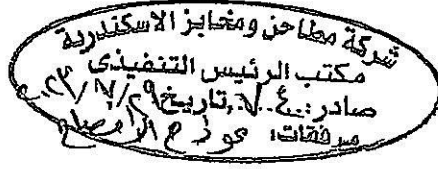 شركة مطاحن ومخابز الاسكندرية
مكتب الرئيس التنفيذى
صادر: ٧٠٤ تاريخ ٢٠٢٣/٧/٢٩
مرفقات: نموذج الافصاح